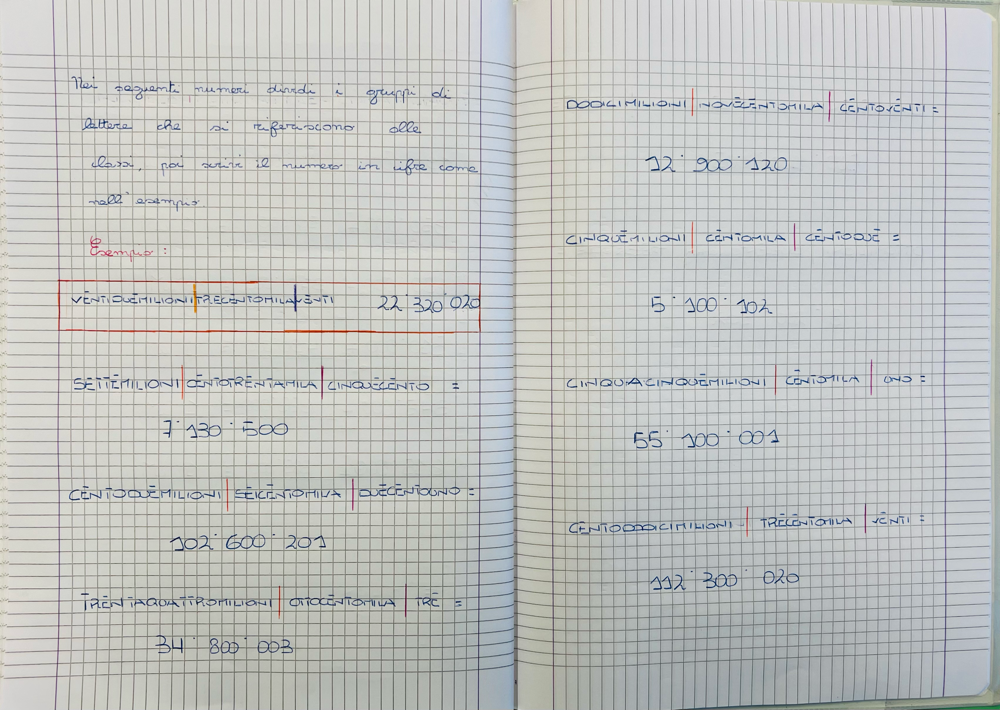 Nei seguenti numeri dividi i gruppi di
lettere che si riferiscono alle
classi, poi scrivi il numero in cifre come
nell'esempio.
Esempio:
VENTIDUEMILIONI|TRECENTOMILA|VENTI 22˙320˙020
SETTEMILIONI|CENTOTRENTAMILA|CINQUECENTO =
7˙130˙500
CENTODUEMILIONI|SEICENTOMILA|DUECENTOUNO =
102˙600˙201
TRENTAQUATTROMILIONI|OTTOCENTOMILA|TRE =
34˙800˙003
DODICIMILIONI|NOVECENTOMILA|CENTOVENTI =
12˙900˙120
CINQUEMILIONI|CENTOMILA|CENTODUE =
5˙100˙102
CINQUACINQUEMILIONI|CENTOMILA|UNO =
55˙100˙001
CENTODODICIMILIONI|TRECENTOMILA|VENTI =
112˙300˙020